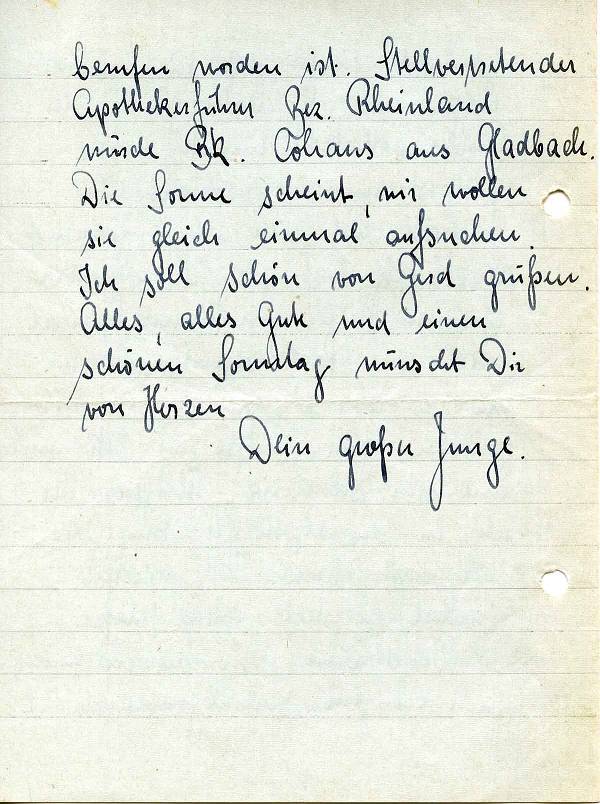 berufen worden ist. Stellvertretender
Apothekerführer Bez. Rheinland
würde Bk. Cohaus aus Gladbach.
Die Sonne scheint, wir wollen
sie gleich einmal aufsuchen.
Ich soll schön von Gerd grüßen.
Alles, alles Gute und einen
schönen Sonntag wünscht Dir
von Herzen
Dein großer Junge.